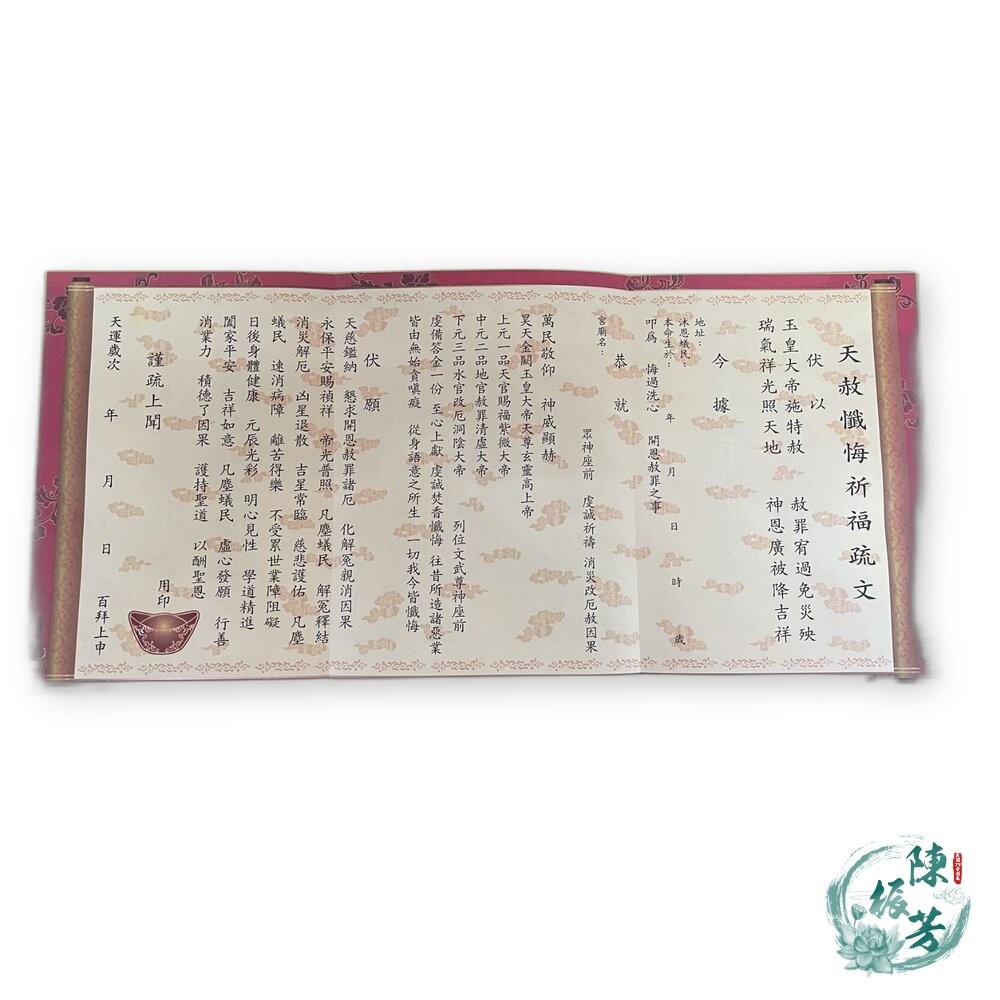 天赦懺悔祈福疏文
伏以
玉皇大帝施特赦 赦罪宥過免災殃
瑞氣祥光照天地 神恩廣被降吉祥
今據
地址：
沐恩蟻民：
本命生於： 年 月 日 時 歲
叩為 悔過洗心 開恩赦罪之事
恭就
宮廟名：
眾神座前 虔誠祈禱 消災改厄赦因果
萬民敬仰 神威顯赫
昊天金闕玉皇大帝天尊玄靈高上帝
上元一品天官賜福紫微大帝
中元二品地官赦罪清虛大帝
下元三品水官改厄洞陰大帝 列位文武尊神座前
虔備答金一份 至心上獻 虔誠焚香懺悔 往昔所造諸惡業
皆由無始貪嗔癡 從身語意之所生 一切我今皆懺悔
伏願
天慈鑑納 懇求開恩赦罪諸厄 化解冤親消因果
永保平安賜禎祥 帝光普照 凡塵蟻民 解冤釋結
消災解厄 凶星退散 吉星常臨 慈悲護佑 凡塵
蟻民 速消病障 離苦得樂 不受累世業障阻礙
日後身體健康 元辰光彩 明心見性 學道精進
闔家平安 吉祥如意 凡塵蟻民 虛心發願 行善
消業力 積德了因果 護持聖道 以酬聖恩
謹疏上聞
用印
天運歲次 年 月 日 百拜上申
陳振芳